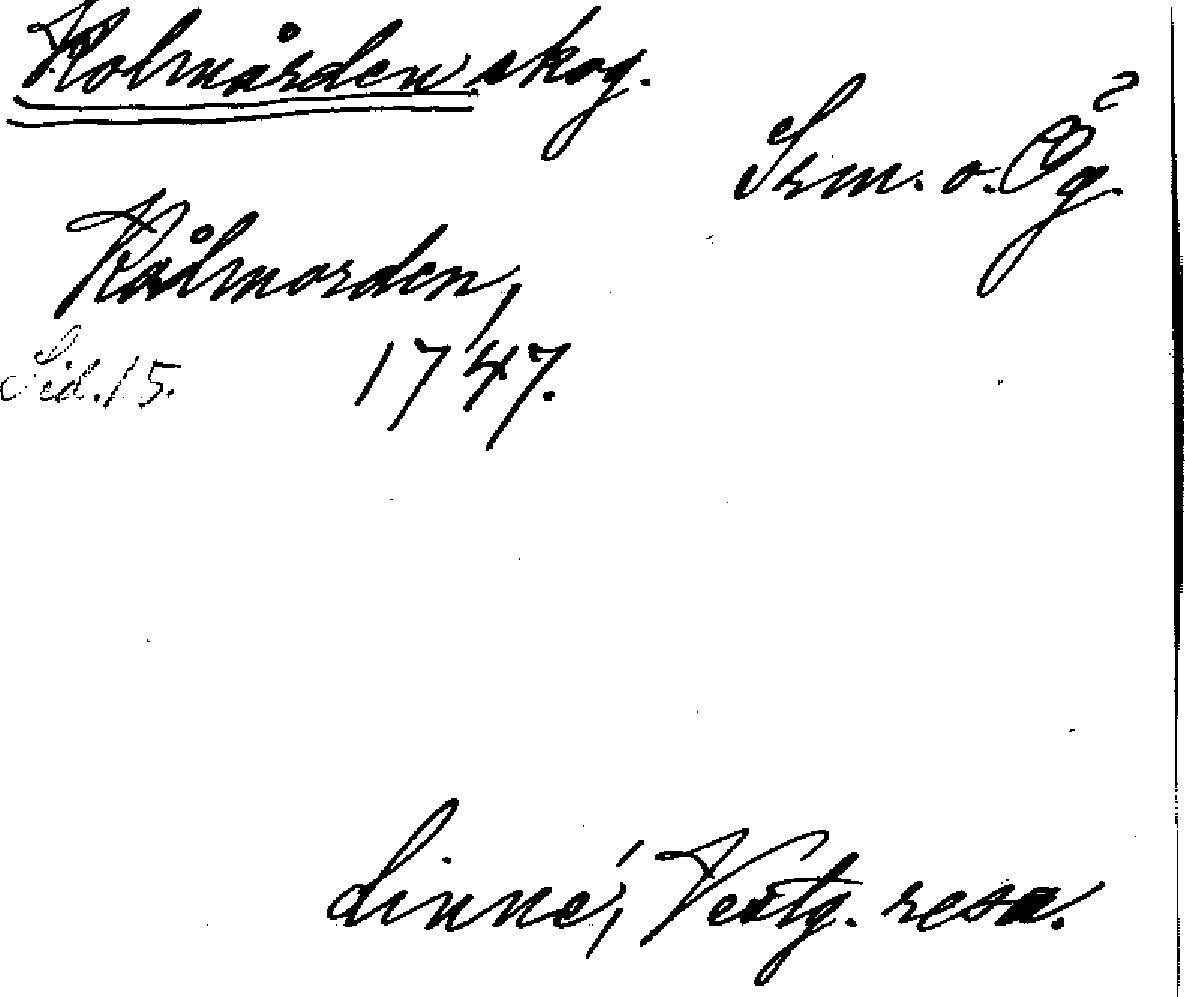 Kolmården skog.
Srm. o. Ög.
Kålmorden,
Sid. 15. 1747.
Linné, Vestg. resa.